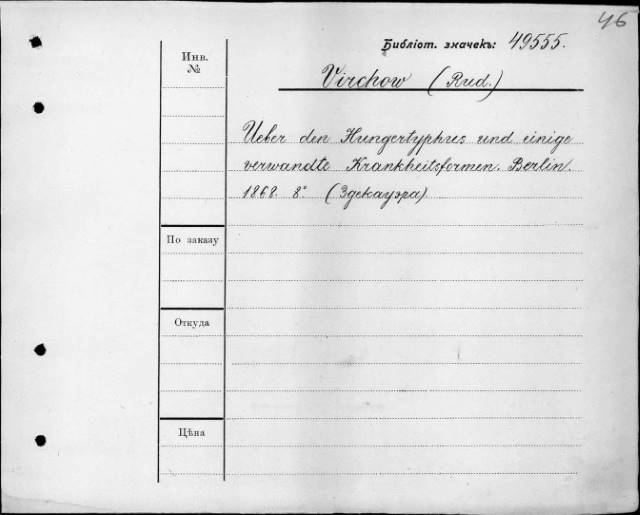 46
Библіот. значекъ: 49555.
Инв.
№
Virchow (Rud.)
Ueber den Hungertyphus und einige
verwandte Krankheitsformen. Berlin.
1868. 8° (Здекауэра)
По заказу
Откуда
Цѣна